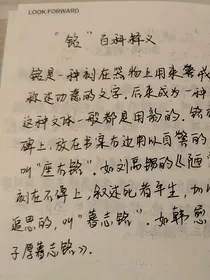 LOOK·FORWARD
"铭"百科释义
铭是一种刻在器物上用来警戒
叙述功德的文字,后来成为一种
这种文体一般都是用韵的。铭
碑上,放在书案右边用以自警的
叫"座右铭"。如刘禹锡的《陋
刻在石碑上,叙述死者生平,加以
追思的,叫"墓志铭"。如韩愈
子厚墓志铭》。